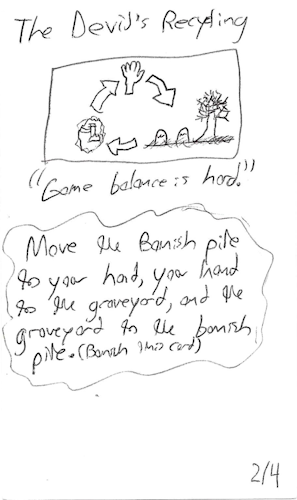 The Devil's Recycling
"Game balance is hard."
Move the Banish pile
to your hand, your hand
to the graveyard, and the
graveyard to the banish
pile. (Banish this card)
2/4